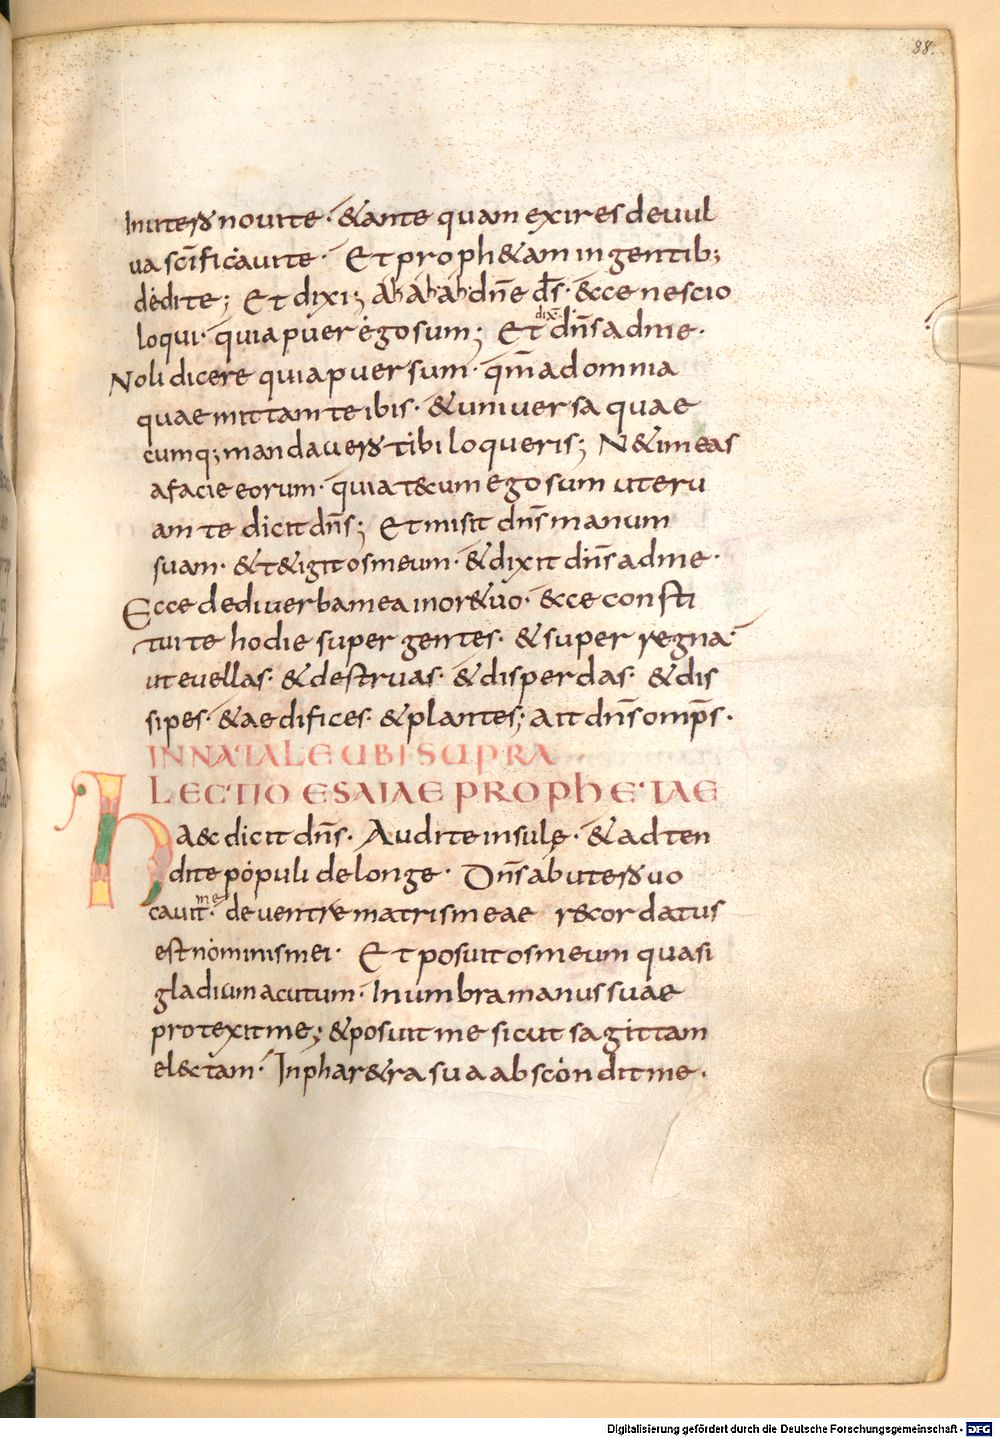 88.
In utero novi te · & ante quam exires de vul
va sc̄ificavi te · Et proph&am in gentib;
dedi te; Et dixi; A h A h A h dn̄e ds̄ · &cce nescio
loqui · quia puer ego sum; Et dix̄ dn̄s ad me ·
Noli dicere quia puer sum · qm̄ ad omnia
quae mittam te ibis · & universa quae
cumq; mandavero tibi loqueris; N& imeas
a facie eorum · quia t&cum ego sum ut eru
am te dicit dn̄s; Et misit dn̄s manum
suam · & t&igit os meum · & dixit dn̄s ad me ·
Ecce dedi verba mea in ore tuo · &cce consti
tui te hodie super gentes · & super regna ·
ut evellas · & destruas · & disperdas · & dis
sipes · & aedifices · & plantes; Ait dn̄s omp̄s ·
IN NATALE UBI SUPRA
LECTIO ESAIAE PROPHETAE
Haec dicit dn̄s · Audite insulę · & adten
dite populi de longe · Dn̄s ab utero vo
cavit me · de ventre matris meae r&cordatus
est nominis mei · Et posuit os meum quasi
gladium acutum · In umbra manus suae
protexit me; & posuit me sicut sagittam
el&ctam · In phar&ra sua abscondit me ·
Digitalisierung gefördert durch die Deutsche Forschungsgemeinschaft - DFG